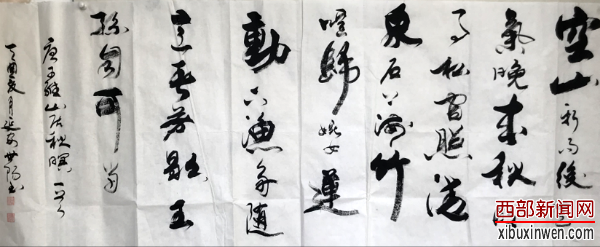 空山新雨後天
氣晚来秋明
月松间照清
泉石上流竹
喧歸浣女蓮
動下漁舟隨
意春芳歇王
孫自可留
唐王維山居秋暝一首
丁酉夏月延安世书
西部新闻网
xibuxinwen.com